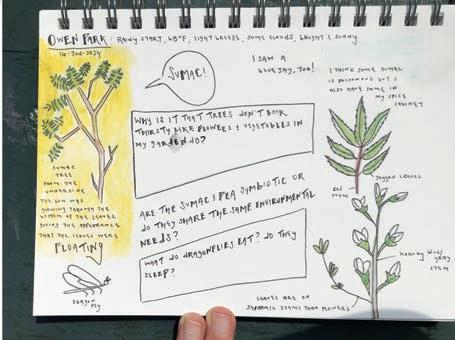 OWEN PARK: RAINY START, 68°F, LIGHT BREEZE, SOME CLOUDS, BRIGHT & SUNNY
14-JUN-2024
SUMAC!
I SAW A
BLUE JAY, TOO!
I THINK SOME SUMAC
IS POISONOUS BUT I
ALSO HAVE SOME IN
MY SPICE
CABINET
WHY IS IT THAT TREES DON'T LOOK
THIRSTY LIKE FLOWERS & VEGETABLES IN
MY GARDEN DO?
JAGGED LEAVES
RED
STEM
SUMAC
TREE
FROM THE
UNDERSIDE
THE SUN WAS
GLOWING THROUGH THE
BOTTOM OF THE LEAVES
GIVING THE APPEARANCE
THAT THE LEAVES WERE
FLOATING
ARE THE SUMACS & PEA SYMBIOTIC OR
DO THEY SHARE THE SAME ENVIRONMENTAL
NEEDS?
WHAT DO DRAGONFLIES EAT? DO THEY
SLEEP?
DRAGON
FLY
STEM
LEAVES ARE ON
SEPARATE STEMS THAN FLOWERS